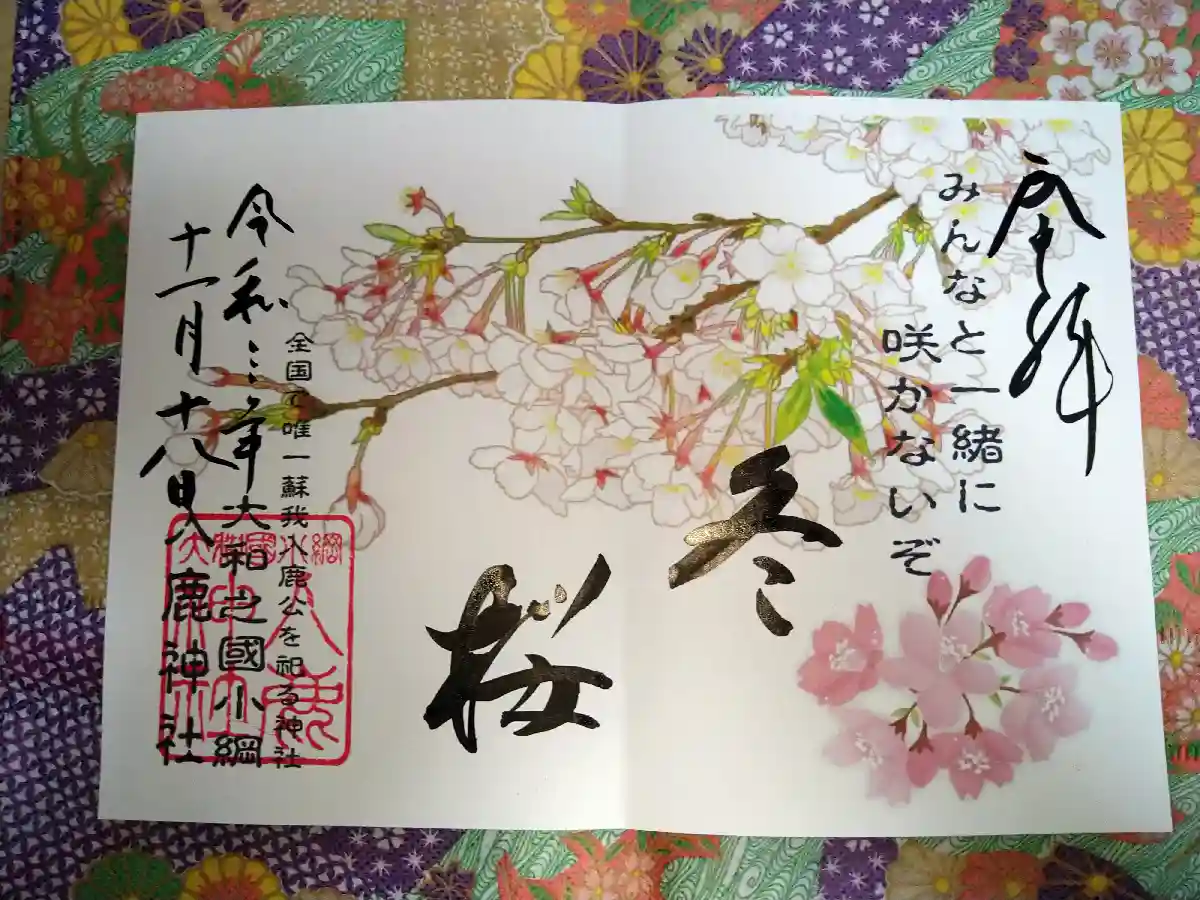 奉拝
みんなと一緒に
咲かないぞ
冬
桜
全国で唯一蘇我入鹿公を祀る神社
大和之國小綱
入鹿神社
令和三年
十一月十八日